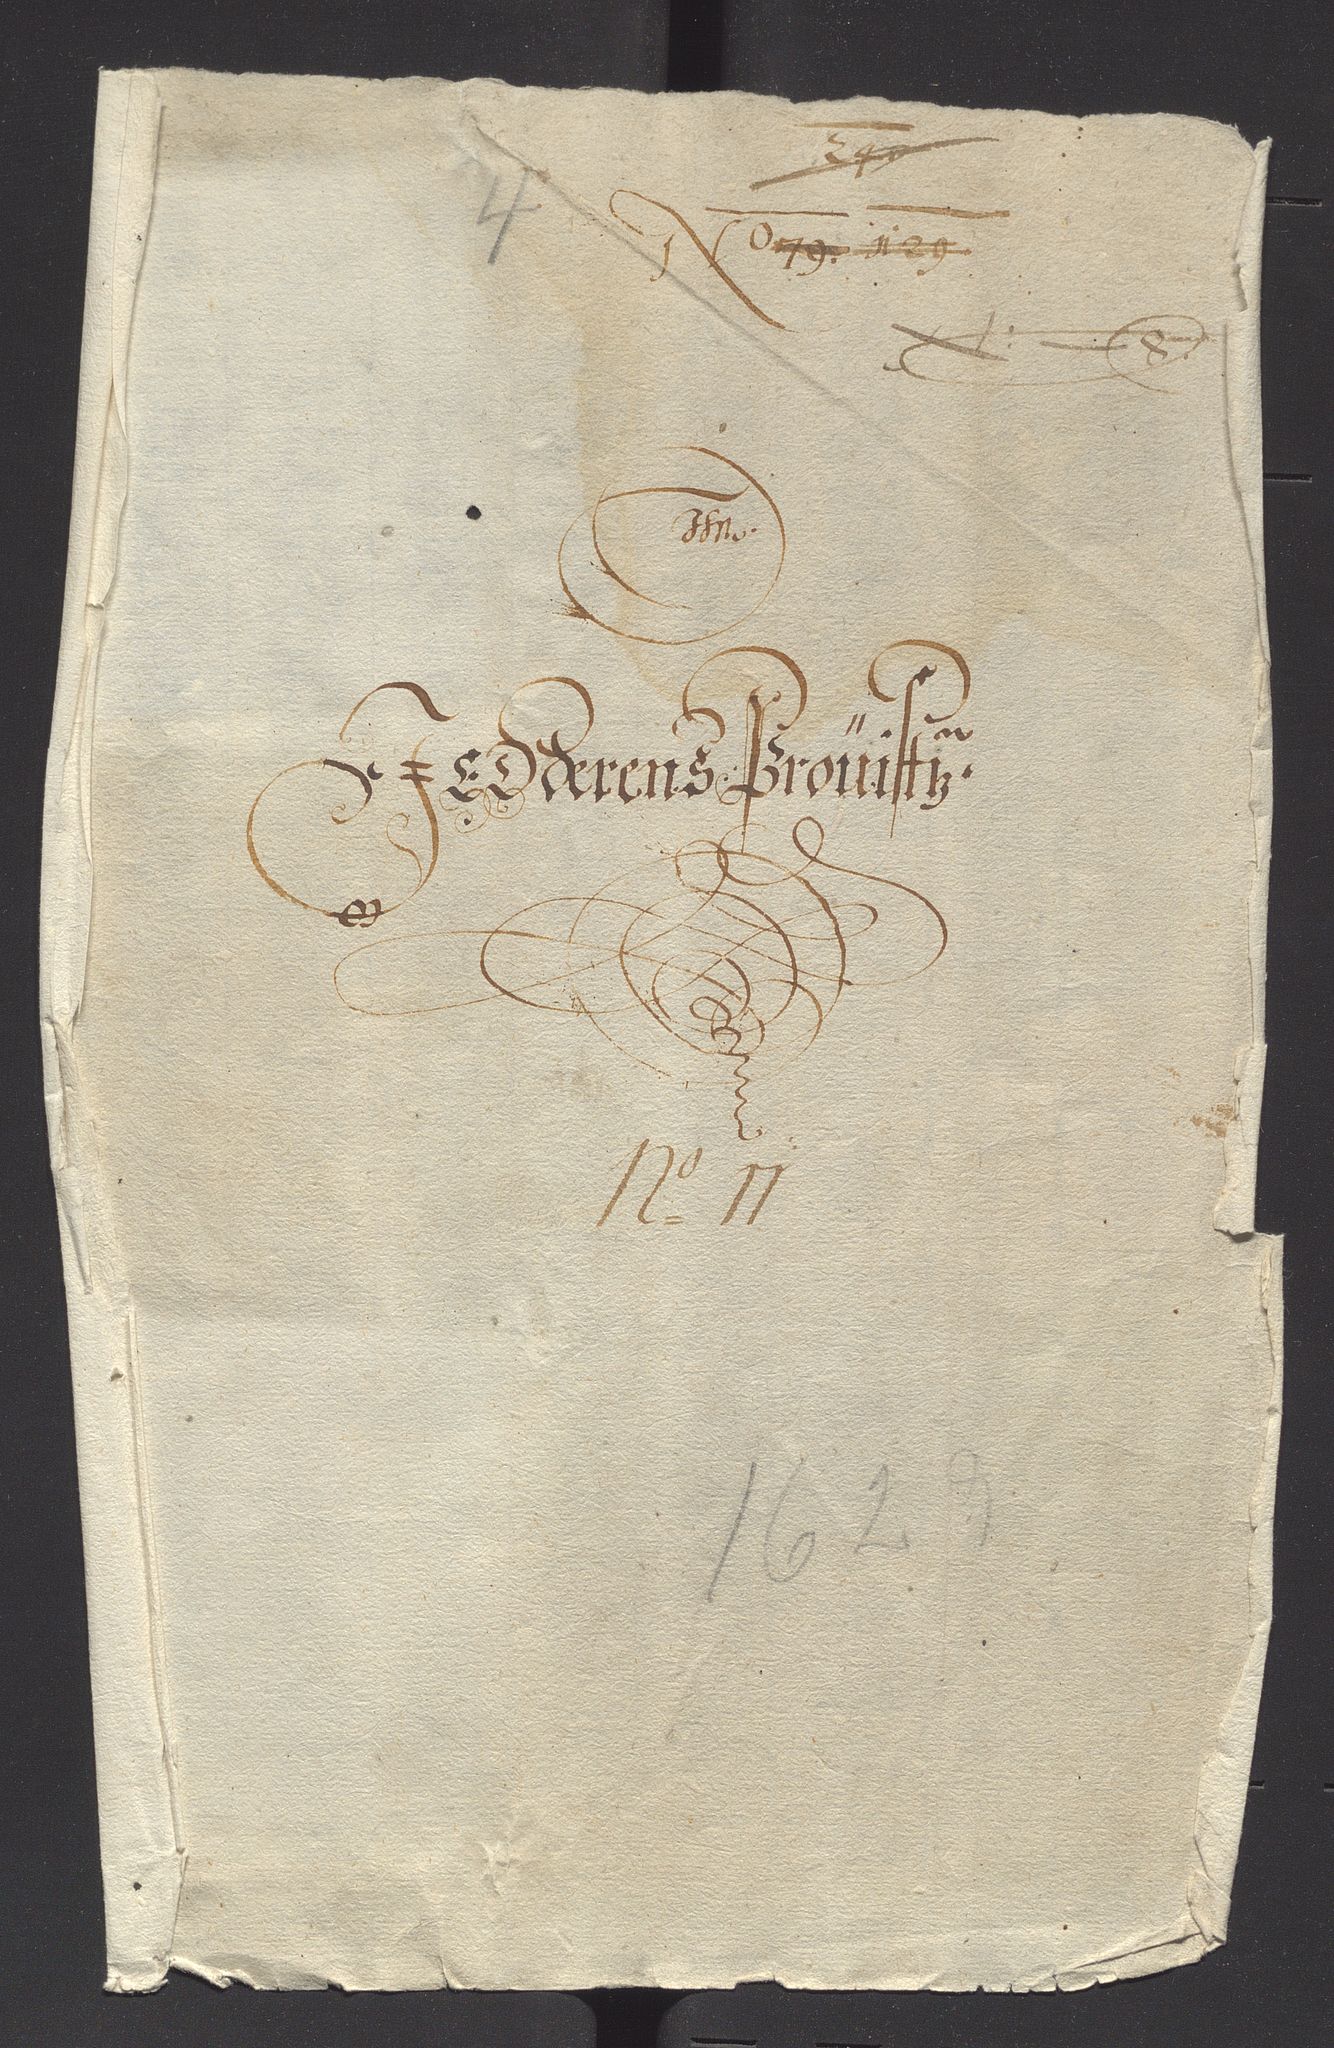 4
240
No 79. 1129.
N: 8.
Jfn.
Jederens Prouisti
No 11
1629